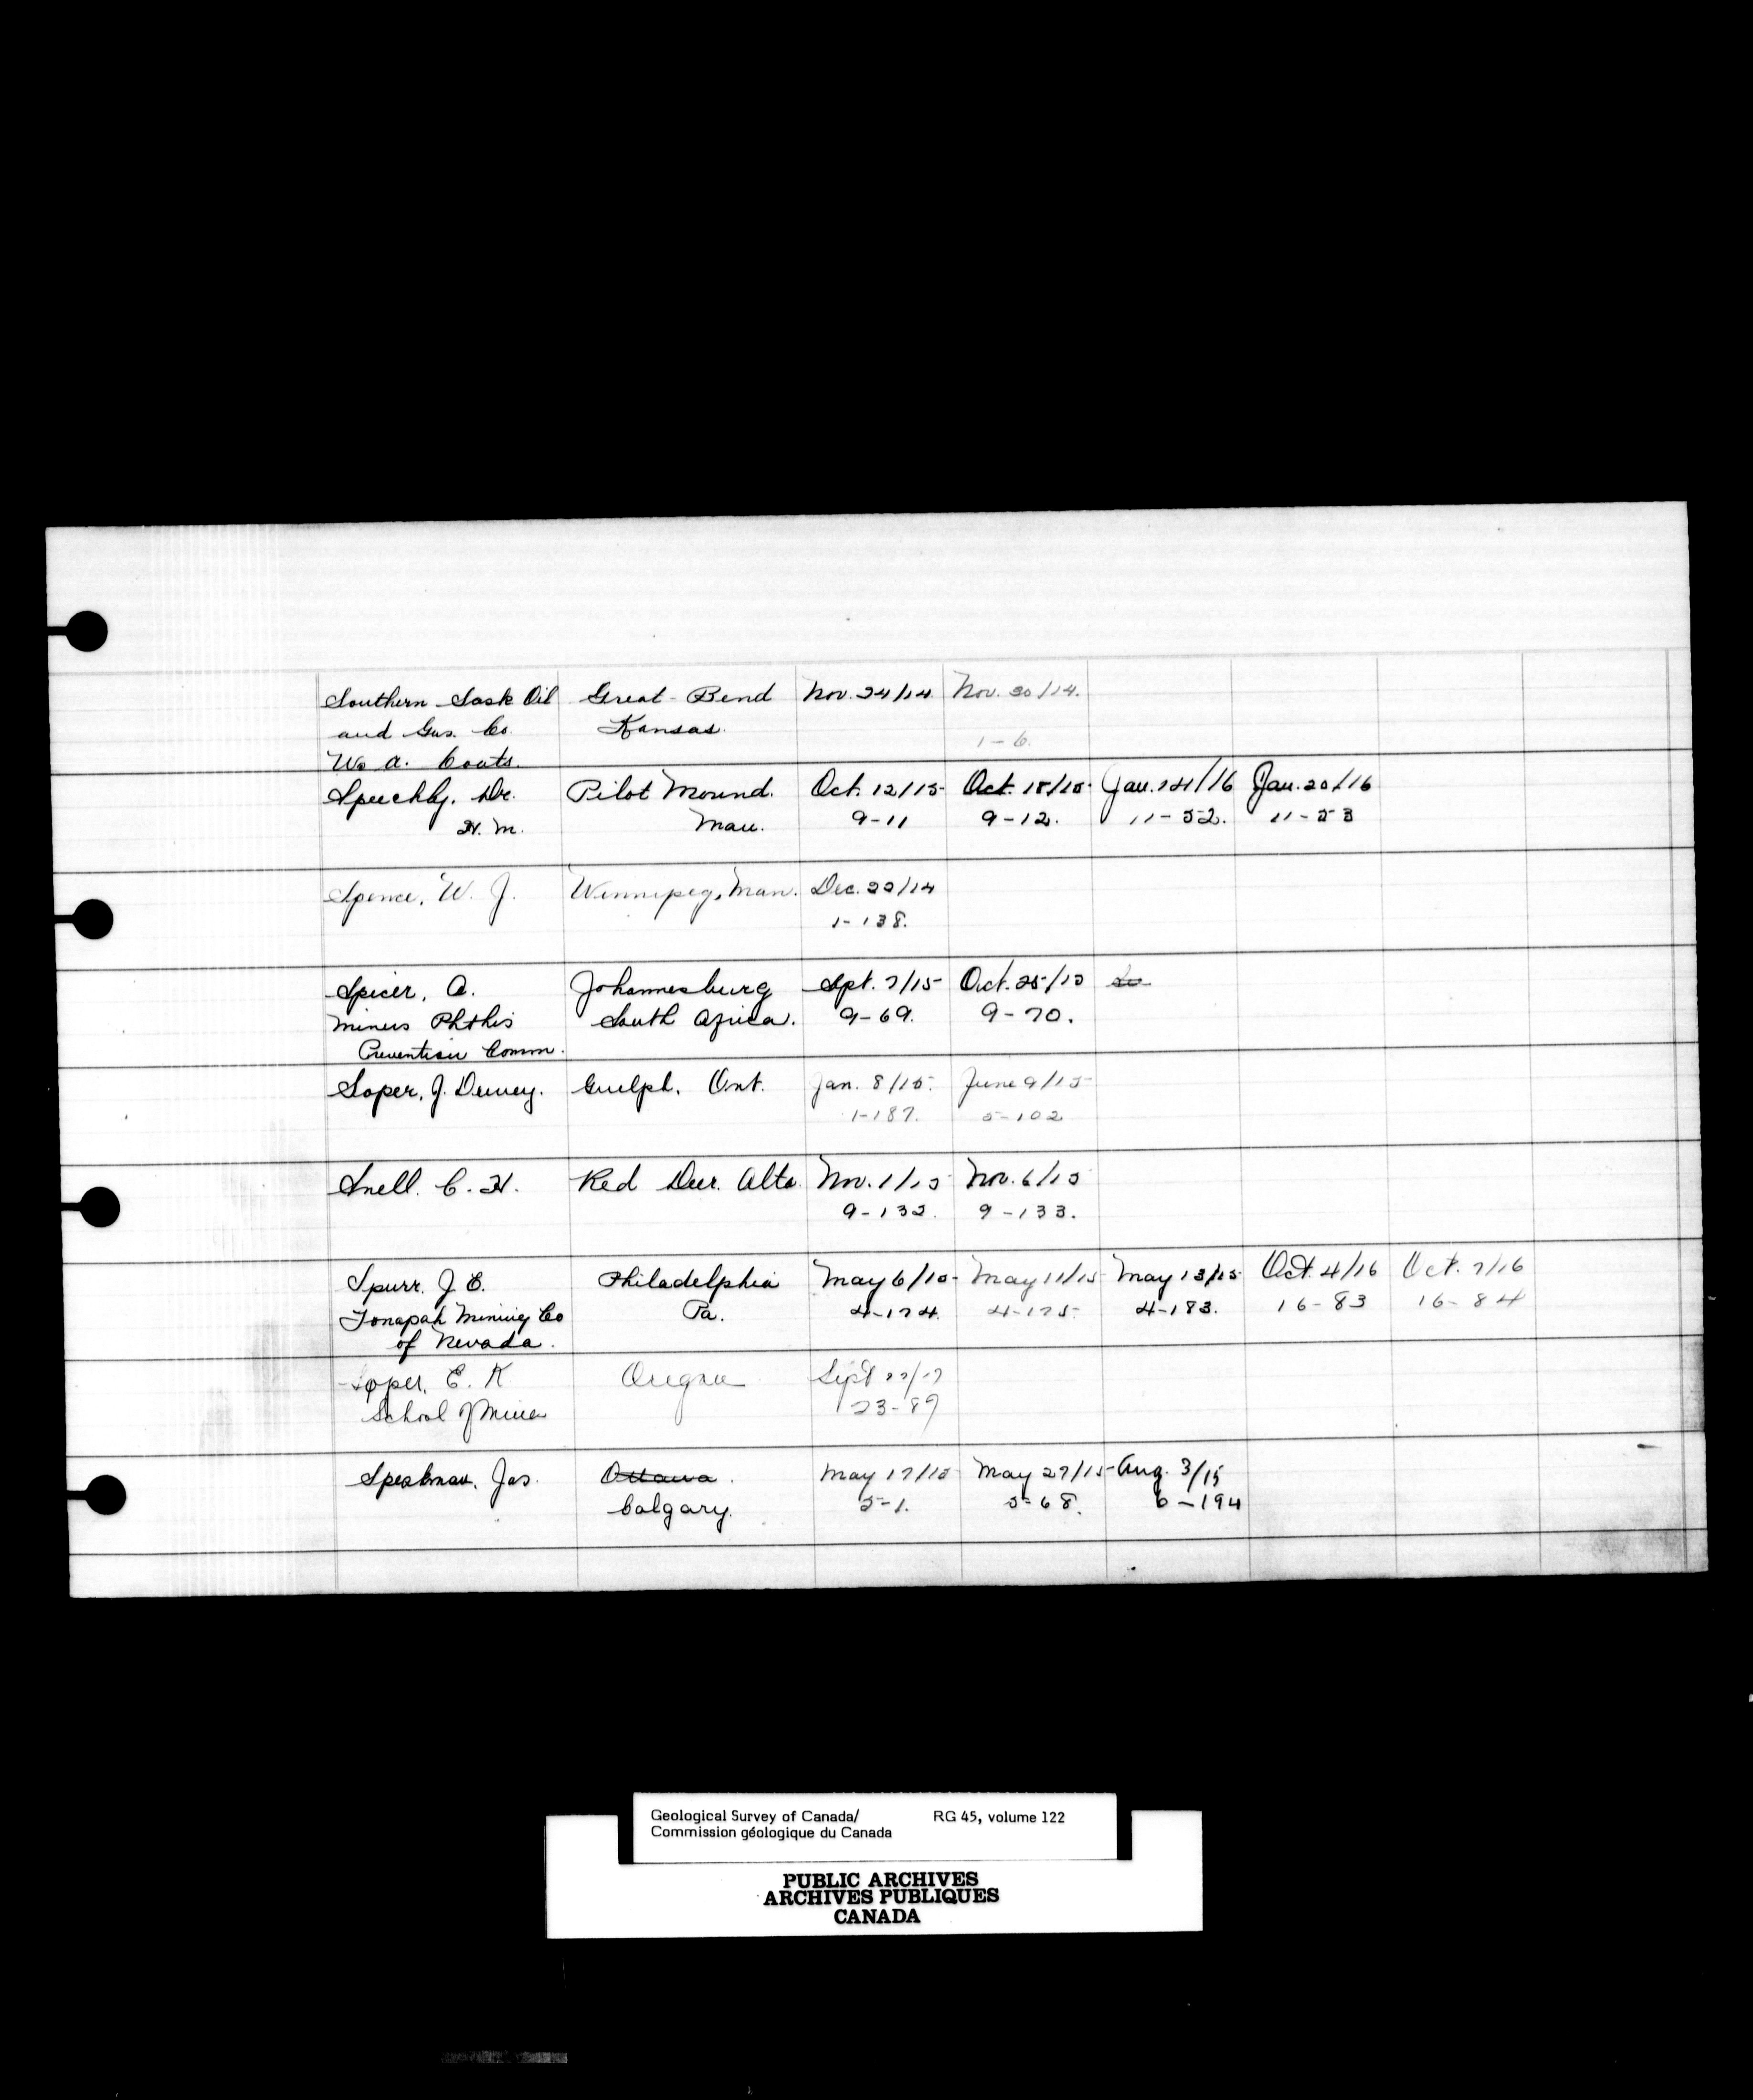 Southern Sask Oil Great Bend Nov. 24/14 Nov. 30/14.
and Gas. Co. Kansas.
1-6.
Wo A. Coats.
Speechly, Dr. Pilot Mound. Oct. 12/15 Oct. 18/15 Jan. 14/16 Jan. 20/16
H. M. Man. 9-11 9-12. 11-52. 11-53
Spence, W. J. Winnipeg, Man. Dec. 22/14
1-138.
Spicer, A. Johannesburg Spt. 7/15 Oct. 25/15
Miners Phthis South Africa. 9-69. 9-70.
Prevention Comm.
Soper, J. Dewey. Guelph, Ont. Jan. 8/15. June 9/15
1-187. 5-102
Snell. C. H. Red Deer. Alta. Nov. 1/15 Nov. 6/15
9-132. 9-133.
Spurr. J. E. Philadelphia May 6/15 May 11/15 May 13/15 Oct. 4/16 Oct. 7/16
Tonapah Mining Co Pa. 4-174. 4-175 4-183. 16-83 16-84
of Nevada.
Soper, E. K Oregon Sept /17
School of Mines 23-89
Speakman, Jas. Ottawa. May 17/15 May 27/15 Aug. 3/15
Calgary. 5-1. 5-68. 6-194
Geological Survey of Canada/ RG 45, volume 122
Commission géologique du Canada
PUBLIC ARCHIVES
ARCHIVES PUBLIQUES
CANADA